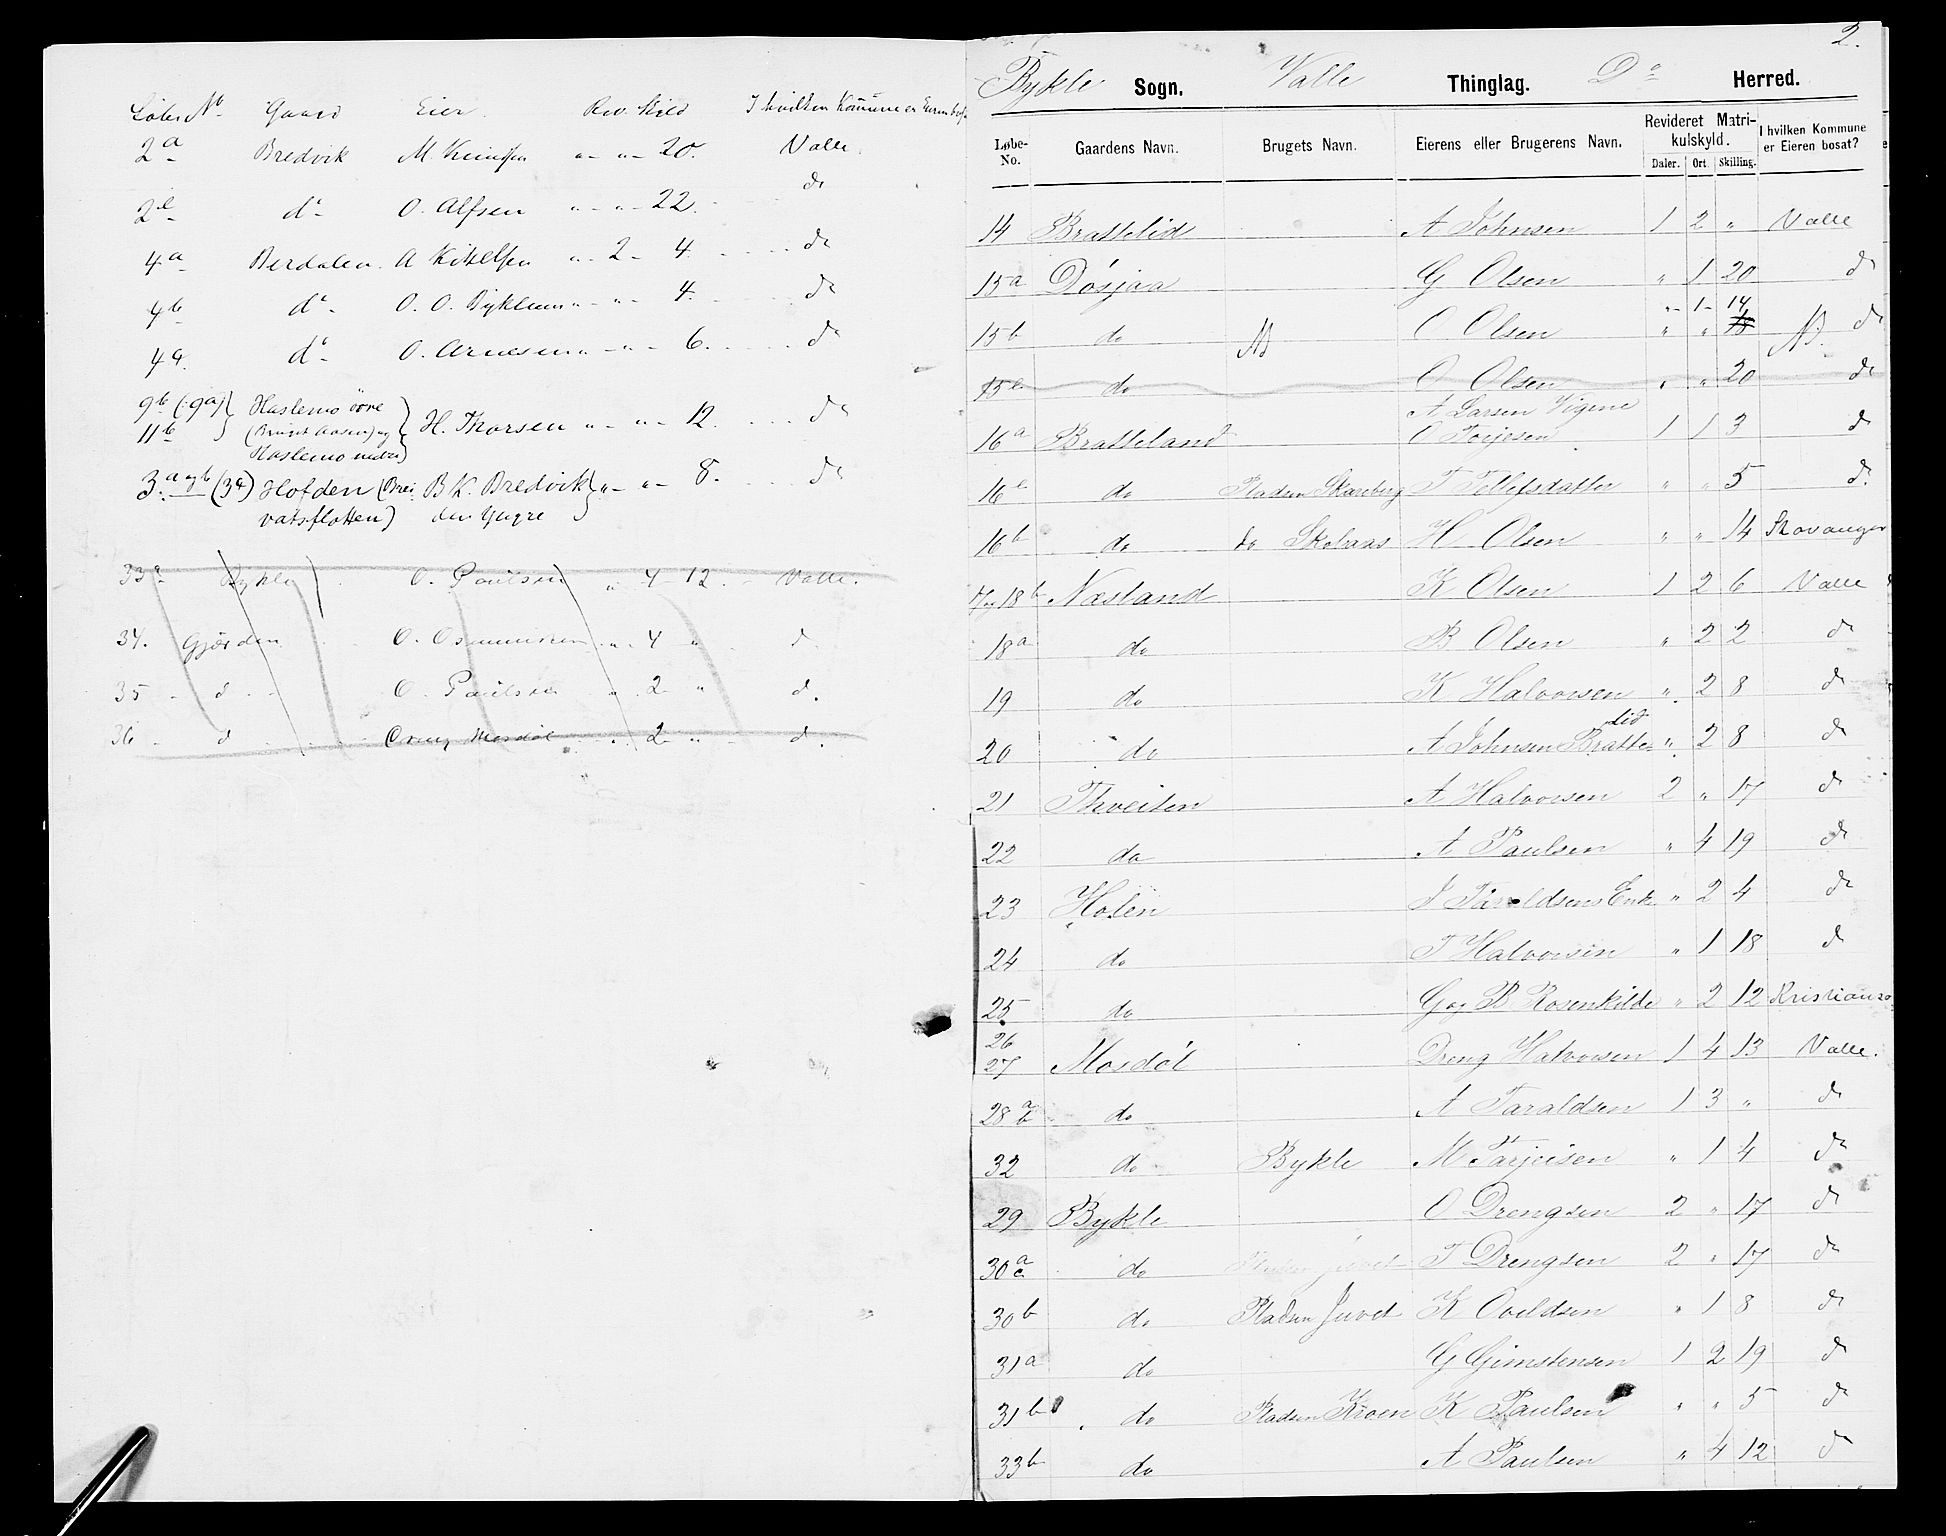 Løbe No Gaard Eier. Rev. Skild I hvilken Kommune er Eieren bosat
2a Bredvik M. „ - „ - 20. Valle.
2c do O. Alfsen „ - „ - 22. do
4a Berdalen. A Kittelsen „ - 2 - 4. do
4b do O. O. Byklum „ - „ - 4. do
4c. do O. Arnesen „ - „ - 6. do
9b (: 9a) Haslemo övre
11b (Bruget Aasen) og H. Thorsen „ - „ - 12. do
Haslemo nedre)
3. a og b (3c) Hofden (Brei- B K. Bredvik „ - „ - 8. do
vatsflotten) den Yngre
33a Bykle O. Paulsen „ 4 - 12. Valle.
34. Gjörden O. Osmundsen „ 4 „ d.
35 - d - O. Paulsen „ 2 „ d.
36 - d Dreng Mosdøl „ 2 „ d.
2.
Bykle Sogn. Valle Thinglag. Do Herred.
Løbe-No. Gaardens Navn. Brugets Navn. Eierens eller Brugerens Navn. Revideret Matrikulskyld. Daler. Ort. Skilling. I hvilken Kommune er Eieren bosat?
14 Brattelid A Johnsen 1 2 „ Valle
15a Dösjaa G Olsen „ 1 20 do
„ - 1 - 14
15b do NB O Olsen „ „ 18 NB. do
15c do O Olsen „ „ 20 do
A Larsen Vigene
16a Bratteland O Torjesen 1 1 3 do
16c do Pladsen Skareberg T Tellefsdatter „ „ 5 do
16b do do Skolaas H Olsen „ „ 14 Stavanger
17 og 18b Næsland K Olsen 1 2 6 Valle
18a do B Olsen „ 2 2 do
19 do K Halvorsen „ 2 8 do
20 do A Johnsen Brattelid „ 2 8 do
21 Thveiten A Halvorsen 2 „ 17 do
22 do A Paulsen „ 4 19 do
23 Holen J Taraldsens Enke „ 2 4 do
24 do T Halvorsen „ 1 18 do
25 do G og B Rosenkilde „ 2 12 Kristianss
26
27 Mosdöl Dreng Halvorsen 1 4 13 Valle.
28 a b do A Taraldsen 1 3 „ do
32 do Bykle M Tarjeisen „ 1 4 do
29 Bykle O Drengsen 2 „ 17 do
30 a c do Pladsen Juvet T Drengsen 2 „ 17 do
30b do Pladsen Juvet K Oveldsen „ 1 8 do
31a do G Gunstensen 1 2 19 do
31b do Pladsen Kroen K Paulsen „ „ 5 do
33b do A Paulsen „ 4 12 do